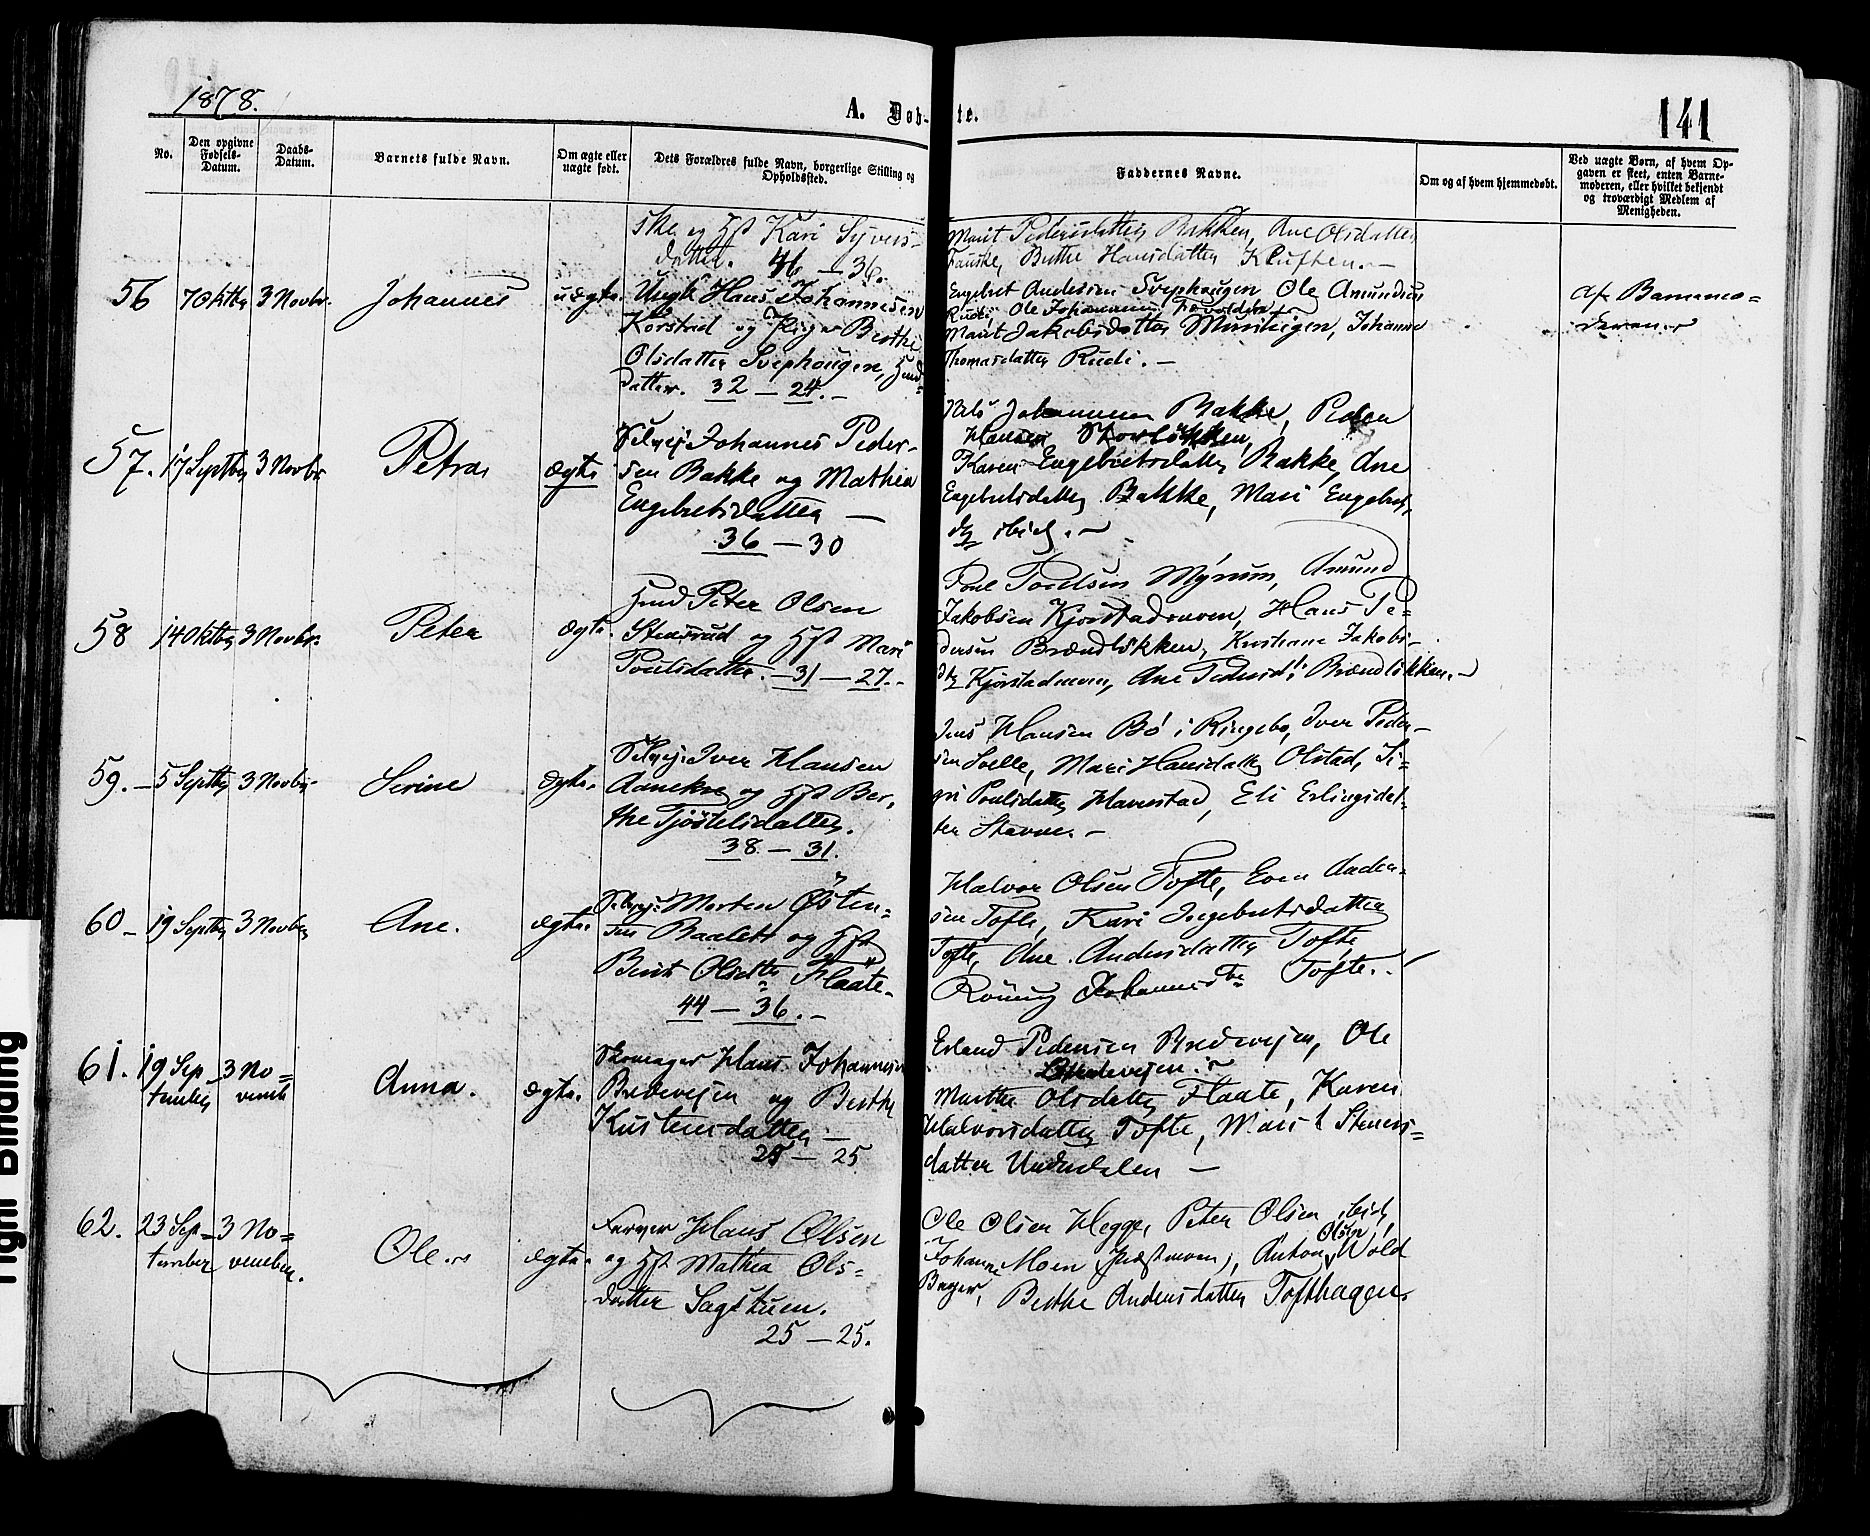 1878.
A. Døb- te.
141
No.
Den opgivne Fødsels-Datum.
Daabs-Datum.
Barnets fulde Navn.
Om ægte eller uægte født.
Dets Forældres fulde Navn, borgerlige Stilling og Opholdssted.
Faddernes Navne.
Om og af hvem hjemmedøbt.
Ved uægte Børn, af hvem Op-
gaven er skeet, enten Barne-
moderen, eller hvilket bekjendt
og troværdigt Medlem af
Menigheden.
ske og Hst Kari Syvers-
datter. 46 - 36.
Marit Pedersdatter Bakken, Ane Olsdatter
Fauske, Berthe Hansdatter Kluften. -
56 7 Oktbr 3 Novbr. Johannes uægte.
Ungk Hans Johannesen
Korstad og Pige Berthe
Olsdatter Svephougen, Hus-
datter. 32 - 24. -
Engebret Andersen Svephougen Ole Amundsen
Rudi, Ole Johannesen
Marit Jakobsdatter Johanne
Thomasdatter Rudi. -
Af Barnemo=
deren.
57. 17 Septbr 3 Novbr. Petra ægte
Selvej: Johannes Peder-
sen Bakke og Mathea
Engebretsdatter -
36 - 30
Nils Johannesen Bakke, Peder
Hansen
Karen Engebretsdatter Bakke, Ane
Engebretsdatter Bakke, Mari Engebrets
dtr ibid. -
58 14 Oktbr 3 Novbr. Peter ægte.
Husmd Peter Olsen
Stensrud og Hst Mari
Poulsdatter. - 31 - 27. -
Poul Poulsen Myrum, Amund
Jakobsen Kjorstadmoen, Hans Pe=
dersen Brændløkken, Kristiane Jakobs-
dtr Kjorstadmoen, Ane Pedersd: Brændløkken. -
59. - 5 Septbr 3 Novbr. Serine ægte.
Selvej: Iver Hansen
Aanekre og Hst Ber,
the Tjøstelsdatter.
38. - 31.
Jens Hansen Bø i Ringebo, Iver Peder-
sen Solle, Mari Hansdatter Olstad, Si=
gri Poulsdatter Harrestad, Eli Erlingsdat-
ter Stavne. -
60 - 19 Septbr 3 Novbr Ane. ægte.
Selvej: Morten Østen=
sen Baalet og Hst
Berit Olsdtr Flaate.
44 - 36. -
Halvor Olsen Tofte, Even Ander-
sen Tofte, Kari Ingebretsdatter
Tofte, Ane Andersdatter Tofte,
Rønnug Johannesdtr Tofte.
61. 19 Sep- 3 No=
tember vember Anna. ægte.
Skomager Hans Johannesen
Bredevejen og Berthe
Kristensdatter -
25 - 25
Erland Pedersen Bredevejen, Ole
Marthe Olsdatter Flaate, Karen
Halvorsdatter Tofte, Marit Steners=
datter Undersdalen -
62. 23 Sep- 3 No=
tember vember. Ole. ægte.
Farver Hans Olsen
og Hst Mathea Ols=
datter Sagstuen.
25 - 25.
Ole Olsen Hegge, Peter Olsen ibid,
Johanne Moen (Præstmoen), Anton Olsen Wold
Bager, Berthe Andersdatter Tofthagen.
Tight Binding